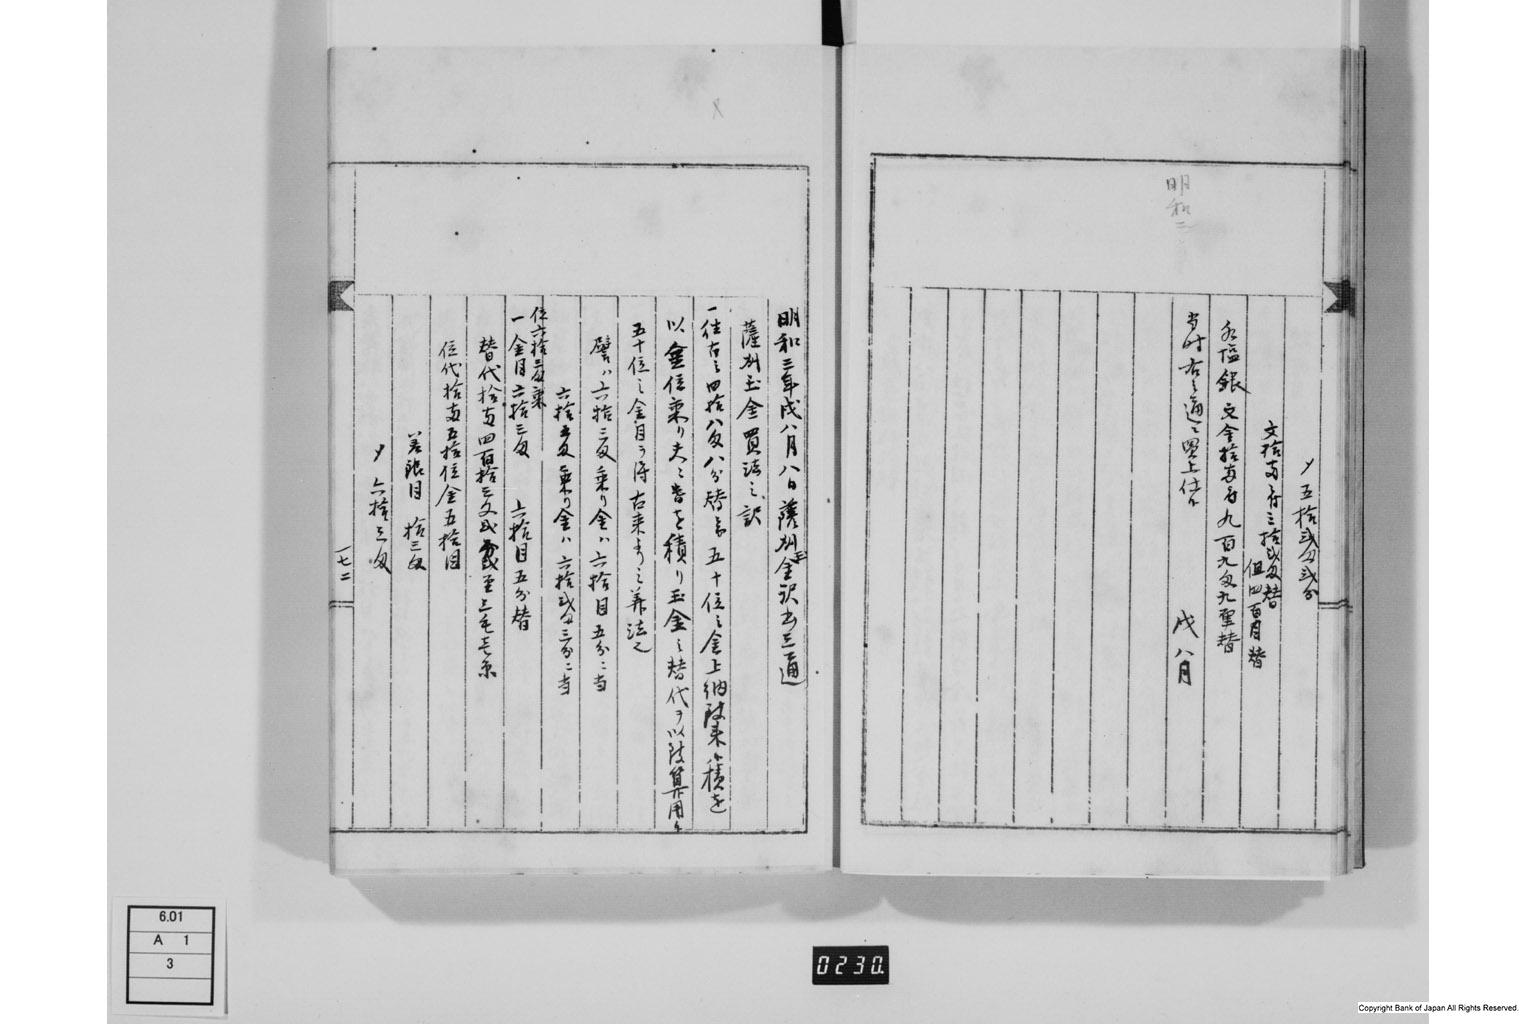 明和三
〆五拾弐匁弐分
文拾両ニ付三拾弐匁替
但四百目替
永塩銀文金拾両ニ付九百九匁九厘替
当時右之通ニ買上仕候
戌八月
明和三年戌八月八日薩州玉金訳書三通
薩州玉金買法之訳
一往古之四拾八匁八分替
五十位之金上納
積を
以金位乗り夫ニ
を積り玉金之替代ヲ以
算用
五十位之金目ヲ得古来よりの算法也
譬ハ六拾三匁乗り金ハ六拾目五分ニ当
六拾五匁乗り金ハ六拾弐匁三分ニ当
位六拾三匁乗
一金目六拾三匁 六拾目五分替
替代拾両四百拾三文
位代拾両五拾位金五拾目
差銀目拾三匁
〆六拾三匁
一七二
6.01
A 1
3
0230
Copyright Bank of Japan All Rights Reserved.